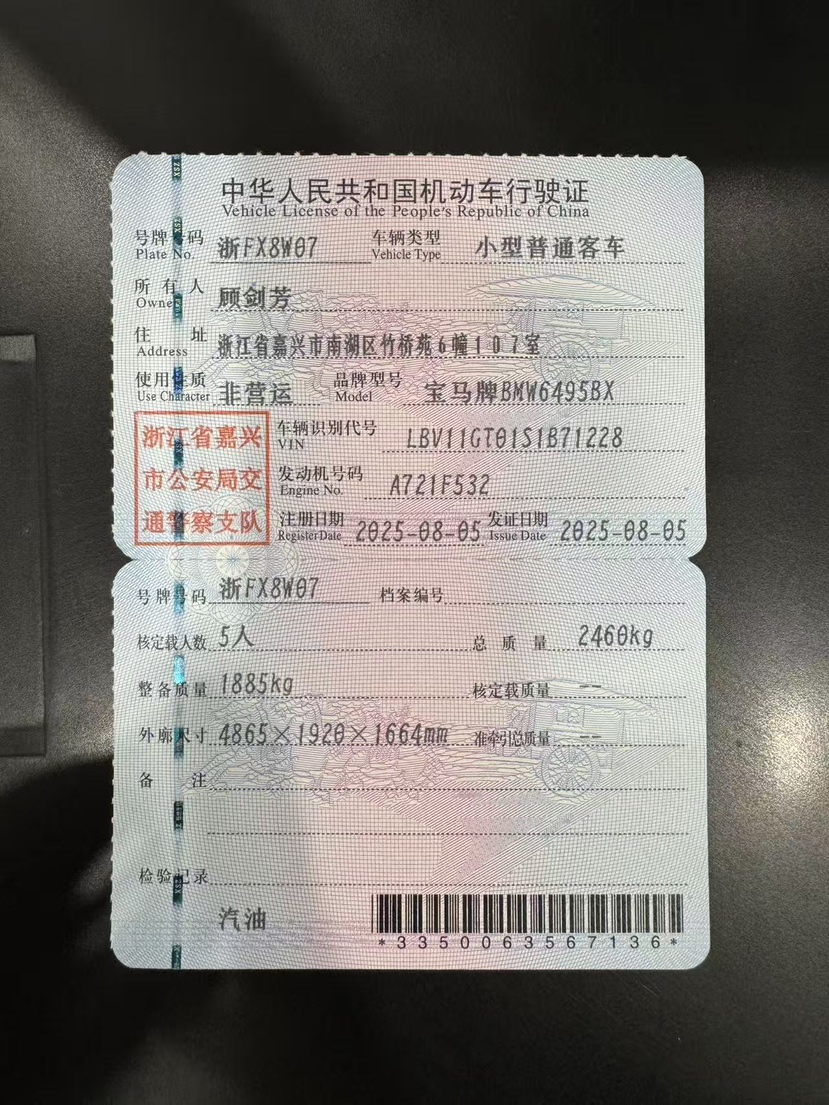 中华人民共和国机动车行驶证
Vehicle License of the People's Republic of China
号牌号码 浙FX8W07 车辆类型 小型普通客车
Plate No. Vehicle Type
所有人 顾剑芳
Owner
住址 浙江省嘉兴市南湖区竹桥苑6幢107室
Address
使用性质 非营运 品牌型号 宝马牌BMW6495BX
Use Character Model
浙江省嘉兴
市公安局交
通警察支队
车辆识别代号 LBV11GT01S1B71228
VIN
发动机号码 A721F532
Engine No.
注册日期 2025-08-05 发证日期 2025-08-05
Register Date Issue Date
号牌号码 浙FX8W07 档案编号
核定载人数 5人 总质量 2460kg
整备质量 1885kg 核定载质量 --
外廓尺寸 4865×1920×1664mm 准牵引总质量 --
备注
检验记录
汽油
*3350063567136*